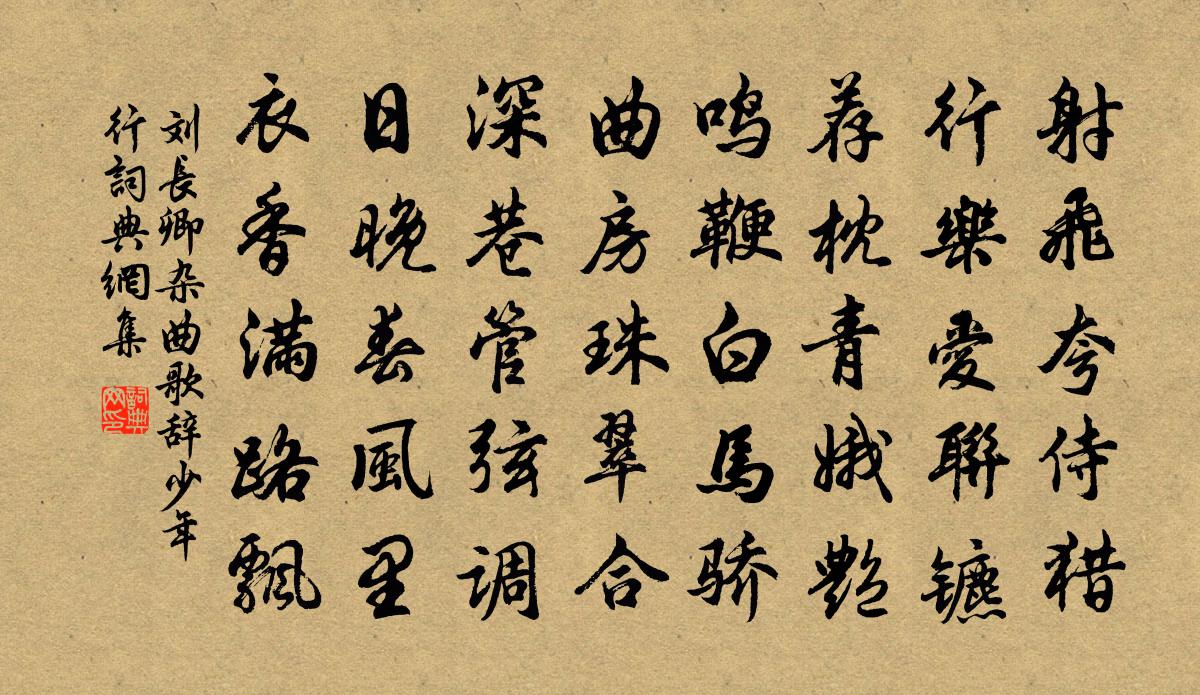 射飛夸侍猎
行樂愛聯镳
荐枕青娥艷
鸣鞭白馬骄
曲房珠翠合
深巷管弦调
日晚春風里
衣香滿路飄
刘長卿杂曲歌辞少年
行詞典網集
詞典
网印